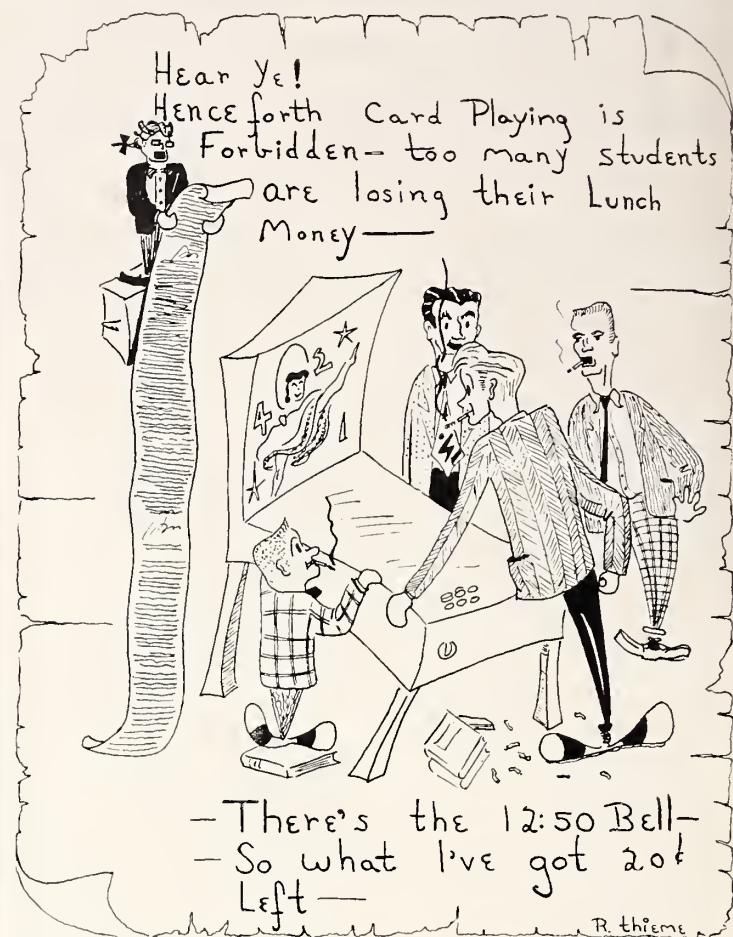 Hear Ye!
Henceforth Card Playing is
Forbidden— too many students
are losing their Lunch
Money——
4 2
1
—There's the 12:50 Bell—
—So what I've got 20¢
Left——
R. thieme